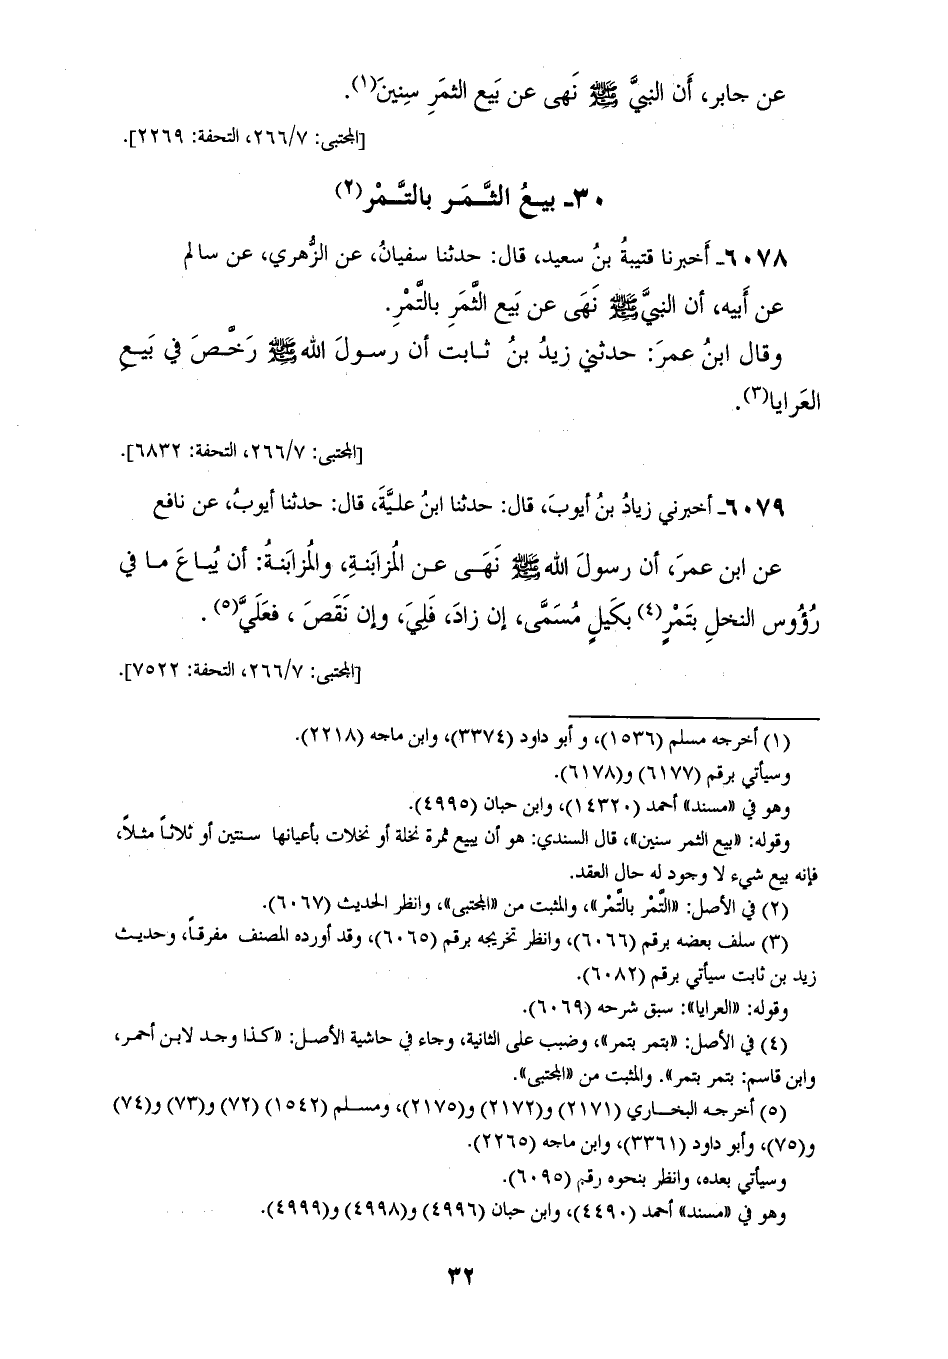 عن جابر، أَن النبيَّ ﷺ نَهى عن بَيع الثمَرِ سِنينَ(١).
[المجتبى: ٢٦٦/٧، التحفة: ٢٢٦٩].
٣٠ـ بيـعُ الثَّـمَـر بالتَّـمْر(٢)
٦٠٧٨ـ أَخبرنا قتيبةُ بنُ سعيد، قال: حدثنا سفيانُ، عن الزُّهري، عن سالم
عن أَبيه، أن النبيَّ ﷺ نَهَى عن بَيع الثَّمَرِ بالتَّمْرِ.
وقال ابنُ عمرَ: حدثني زيدُ بنُ ثـابت أن رسـولَ الله ﷺ رَخَّـصَ في بَيـعِ
العَرايا(٣).
[المجتبى: ٢٦٦/٧، التحفة: ٦٨٣٢].
٦٠٧٩ـ أخبرني زيادُ بنُ أيوبَ، قال: حدثنا ابنُ عليَّةَ، قال: حدثنا أيوبُ، عن نافع
عن ابن عمرَ، أن رسولَ الله ﷺ نَهَـى عـن المُزابَنـةِ، والمُزابَنـةُ: أن يُبـاعَ مـا في
رُؤُوس النخلِ بتَمْرٍ(٤) بكَيلٍ مُسَمَّى، إن زادَ، فَلِيَ، وإن نَقَصَ ، فعَلَيَّ(٥) .
[المجتبى: ٢٦٦/٧، التحفة: ٧٥٢٢].
(١) أخرجه مسلم (١٥٣٦)، و أبو داود (٣٣٧٤)، وابن ماجه (٢٢١٨).
وسيأتي برقم (٦١٧٧) و(٦١٧٨).
وهو في «مسند» أحمد (١٤٣٢٠)، وابن حبان (٤٩٩٥).
وقوله: «بيع الثمر سنين»، قال السندي: هو أن يبيع ثمرة نخلة أو نخلات بأعيانها سـنتين أو ثلاثـاً مثـلاً،
فإنه بيع شيء لا وجود له حال العقد.
(٢) في الأصل: «التَّمْر بالتَّمْر»، والمثبت من «المجتبى»، وانظر الحديث (٦٠٦٧).
(٣) سلف بعضه برقم (٦٠٦٦)، وانظر تخريجه برقم (٦٠٦٥)، وقد أورده المصنف مفرقـاً، وحديـث
زيد بن ثابت سيأتي برقم (٦٠٨٢).
وقوله: «العرايا»: سبق شرحه (٦٠٦٩).
(٤) في الأصل: «بتمر بتمر»، وضبب على الثانية، وجاء في حاشية الأصـل: «كـذا وجـد لابـن أحمـر،
وابن قاسم: بتمر بتمر». والمثبت من «المجتبى».
(٥) أخرجـه البخـاري (٢١٧١) و(٢١٧٢) و(٢١٧٥)، ومسـلم (١٥٤٢) (٧٢) و(٧٣) و(٧٤)
و(٧٥)، وأبو داود (٣٣٦١)، وابن ماجه (٢٢٦٥).
وسيأتي بعده، وانظر بنحوه رقم (٦٠٩٥).
وهو في «مسند» أحمد (٤٤٩٠)، وابن حبان (٤٩٩٦) و(٤٩٩٨) و(٤٩٩٩).
٣٢